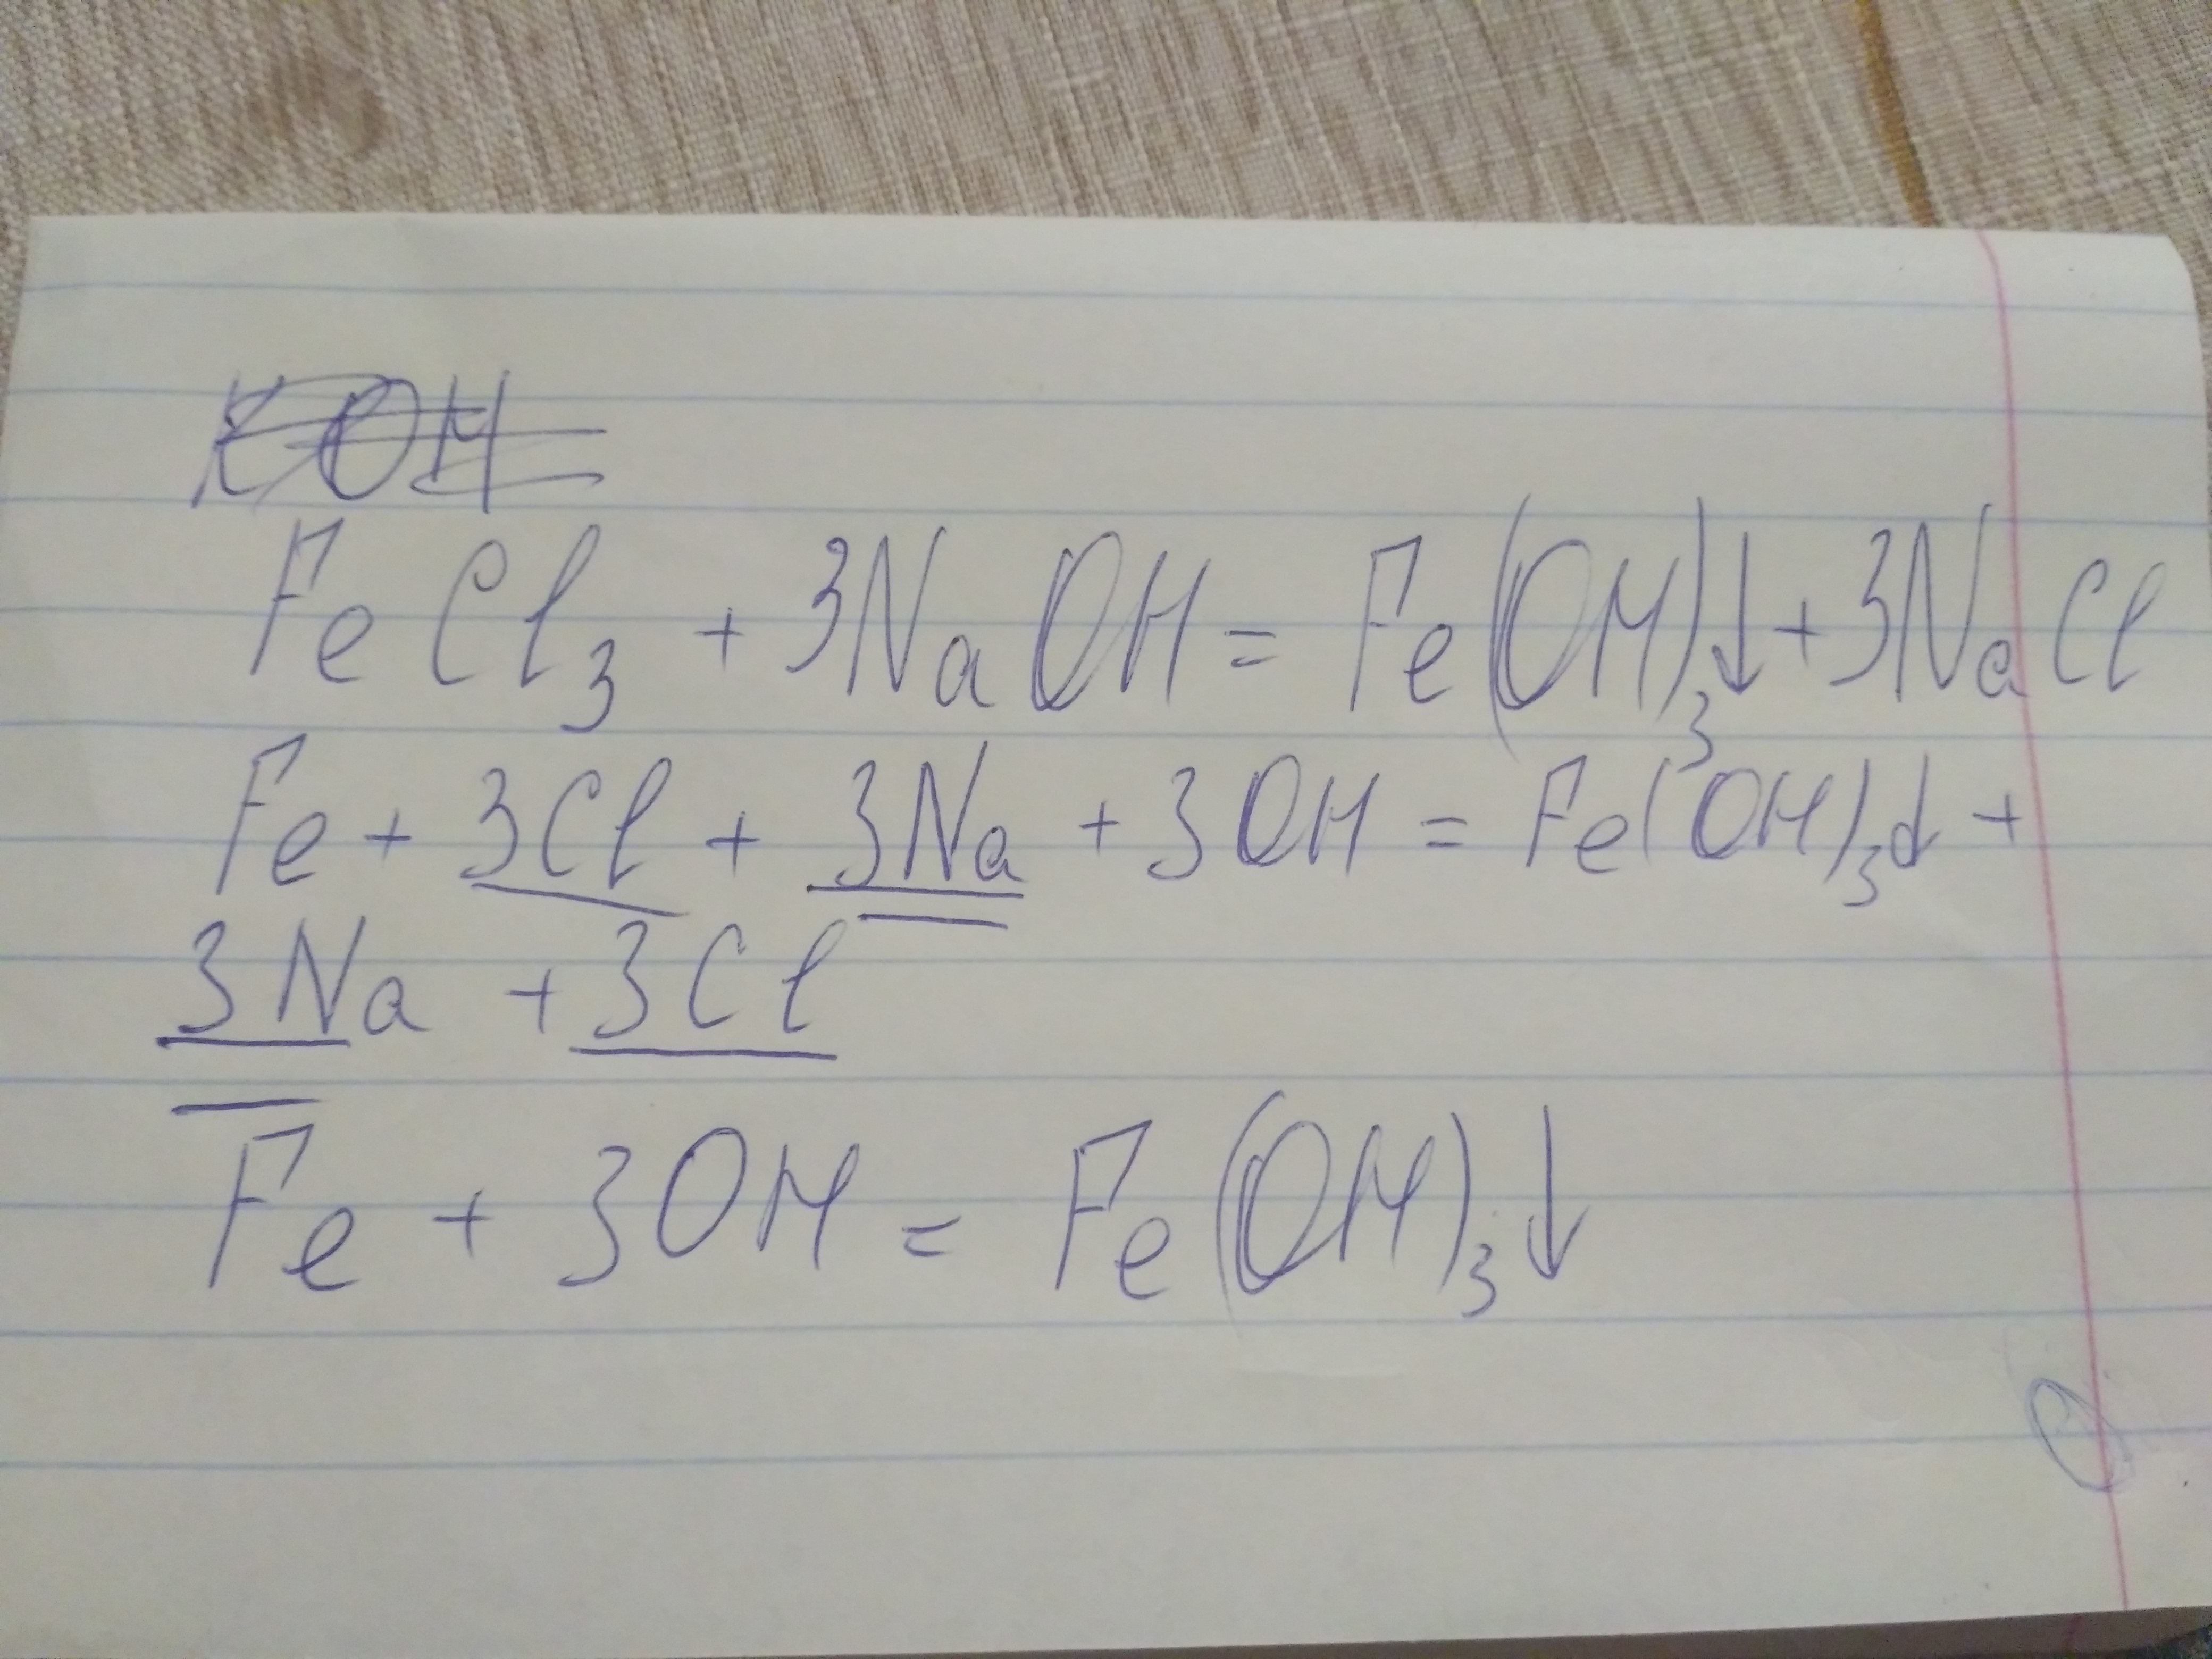 KOH
FeCl₃ + 3NaOH = Fe(OH)₃↓ + 3NaCl
Fe + 3Cl + 3Na + 3OH = Fe(OH)₃↓ +
3Na + 3Cl
Fe + 3OH = Fe(OH)₃↓